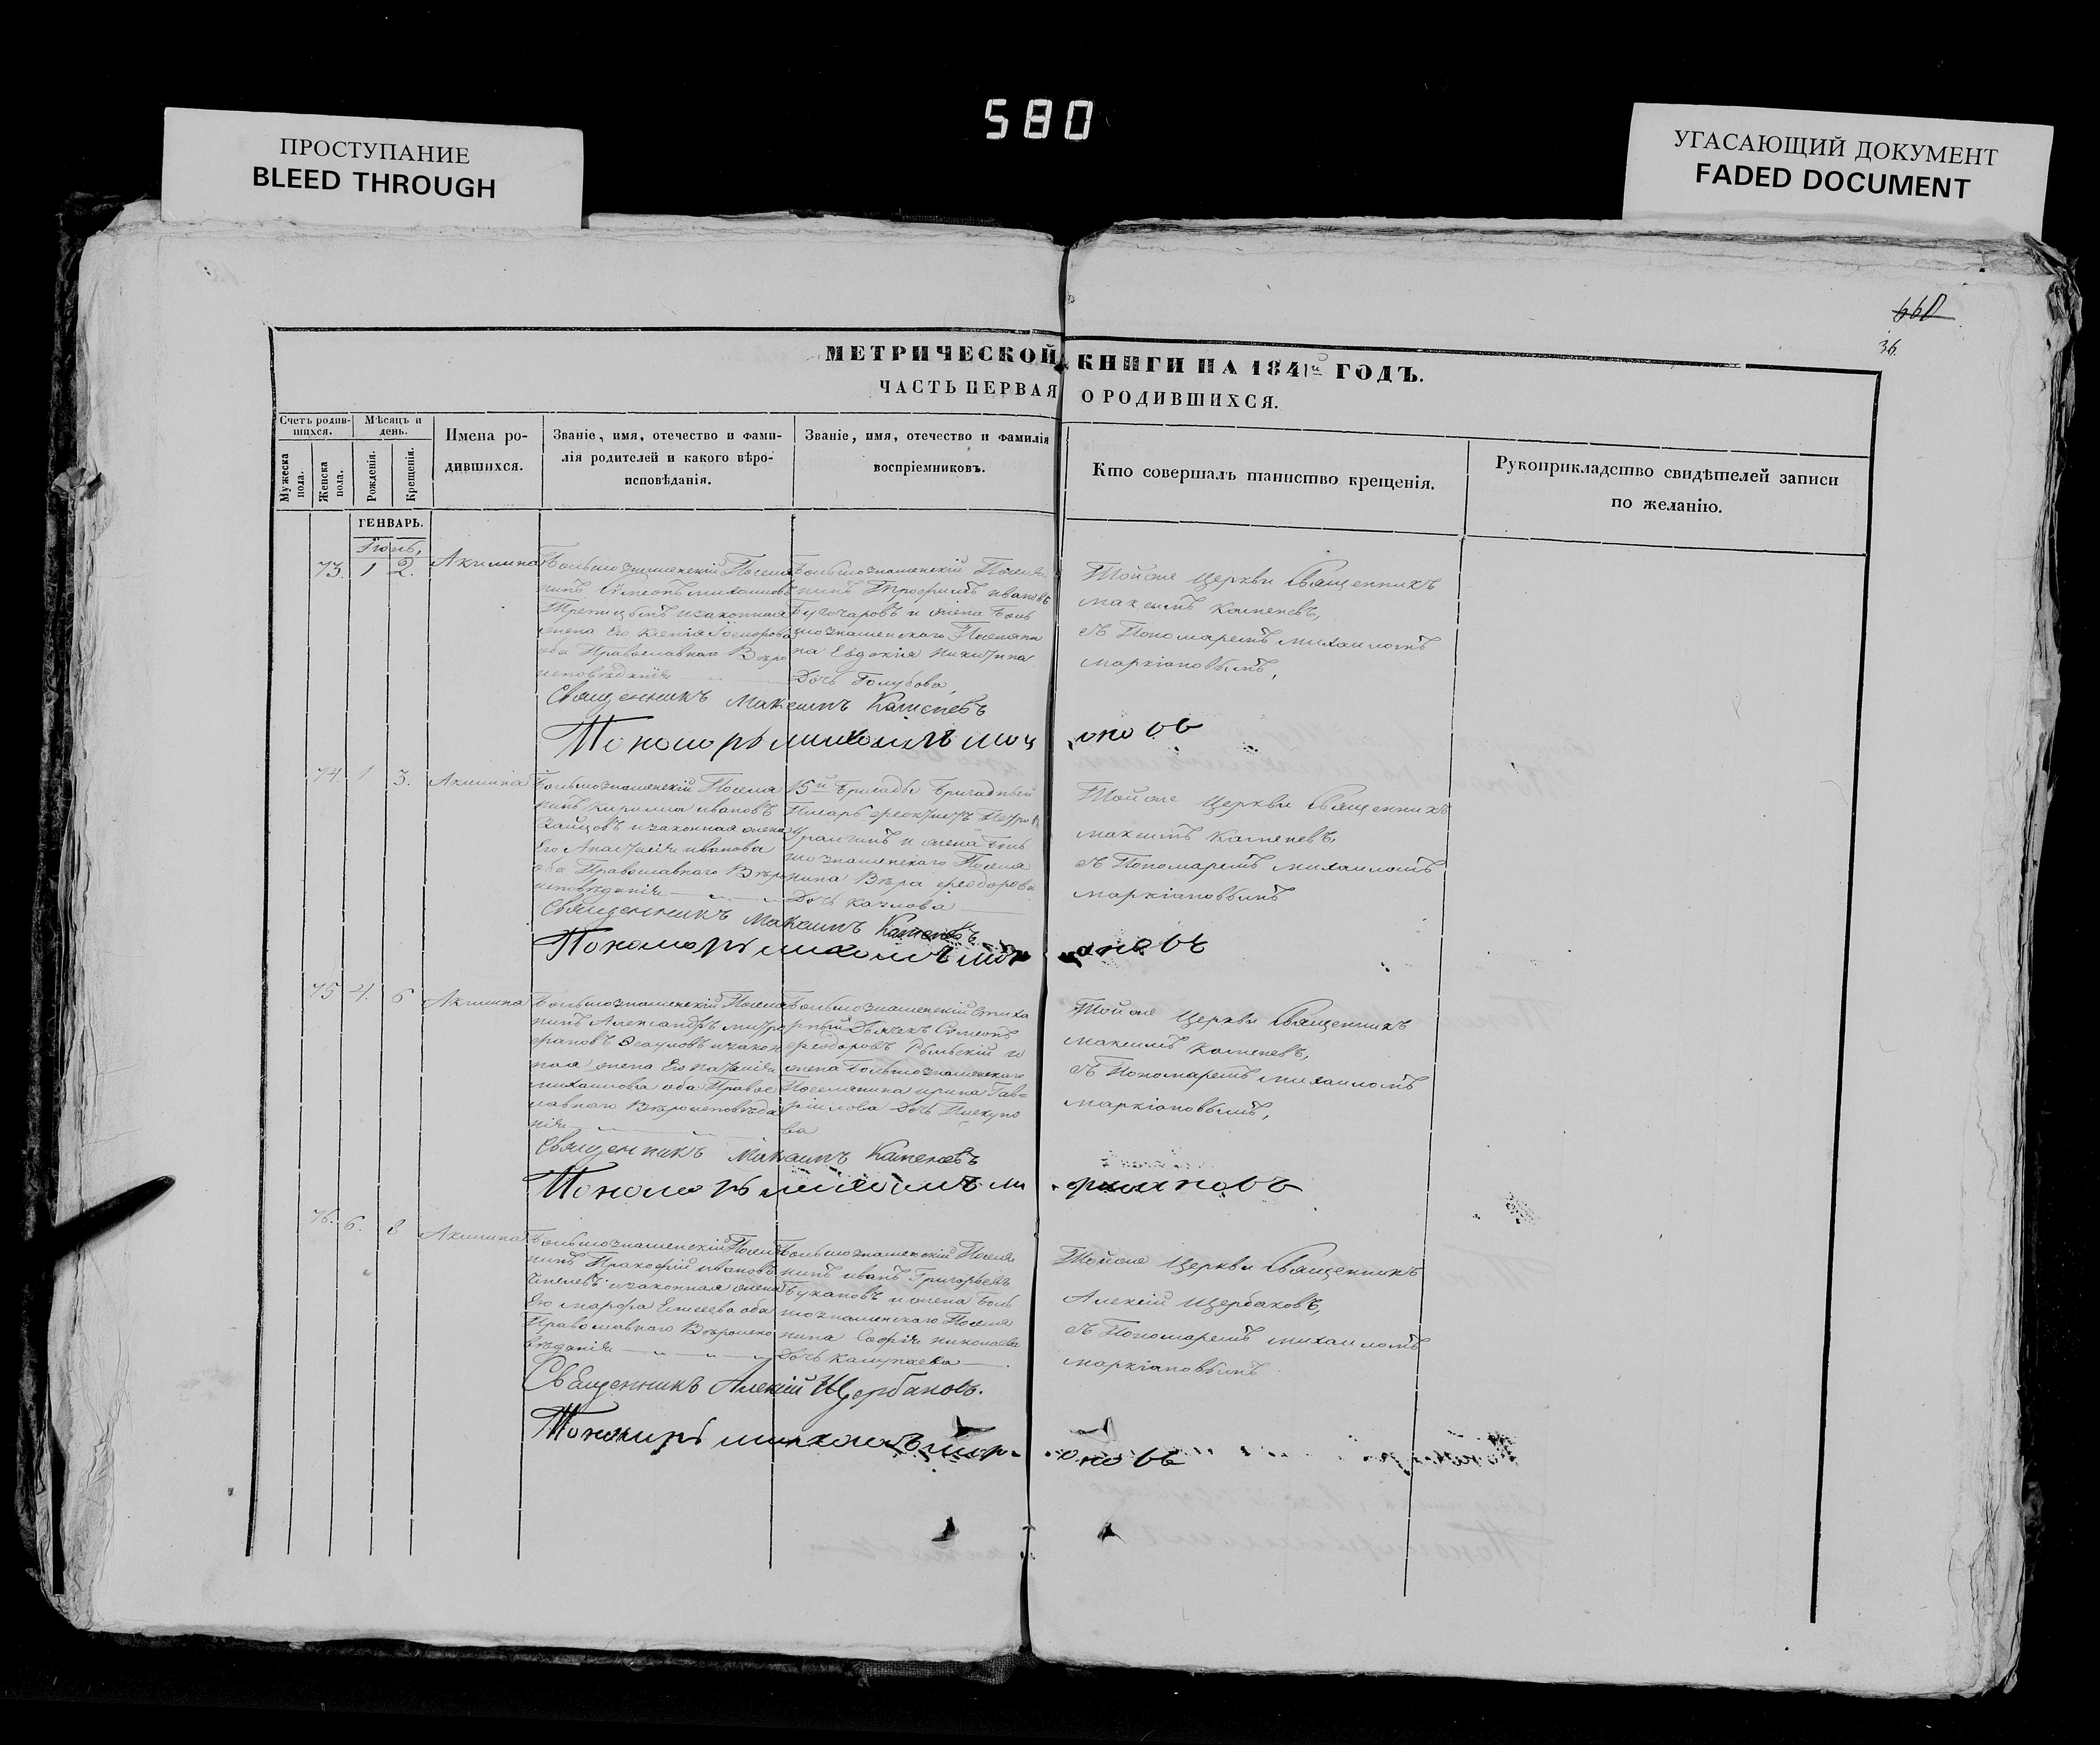 580
ПРОСТУПАНИЕ
BLEED THROUGH
УГАСАЮЩИЙ ДОКУМЕНТ
FADED DOCUMENT
660
36.
МЕТРИЧЕСКОЙ КНИГИ НА 1841й ГОДЪ.
ЧАСТЬ ПЕРВАЯ О РОДИВШИХСЯ.
Счетъ родив-
шихся.
Мужеска пола.
Женска пола.
Мѣсяцъ и
день.
Рожденія.
Крещенія.
Имена ро-
дившихся.
Званіе, имя, отечество и фами-
лія родителей и какого вѣро-
исповѣданія.
Званіе, имя, отечество и фамилія
воспріемниковъ.
Кто совершалъ таинство крещенія.
Рукоприкладство свидѣтелей записи
по желанію.
ГЕНВАРЬ.
Іюнь,
73. 1 2. Акилина
Большознаменскій Поселя
нинъ Сѵмеонъ михаиловъ
и законная
жена Его Ксенія Ѳеодорова
оба Православнаго Вѣро
исповѣданія
Большознаменскій Поселя
нинъ Трофимъ ивановъ
и жена Боль
шознаменскаго Поселяни
на Евдокія никитина
Дочь Голубова,
Тойже Церкви Священникъ
максимъ Каменевъ,
съ Пономаремъ михаиломъ
маркіановымъ,
Священникъ Максимъ Каменевъ
Пономарь михаилъ
74. 1 3. Акилина
Большознаменскій Поселя
нинъ Кирилла ивановъ
Зайцовъ и законная жена
Его Анастасія иванова
оба Православнаго Вѣро
исповѣданія
15й Бригады Бригадный
Писарь Феоктистъ Петровъ
и жена Боль
шознаменскаго Поселя
нина Вѣра феодорова
Дочь Козлова
Тойже Церкви Священникъ
максимъ Каменевъ,
съ Пономаремъ михаиломъ
маркіановымъ
Священникъ Максимъ Каменевъ
Пономарь михаилъ
75 4. 6 Акилина
Большознаменскій Поселя
нинъ Александръ митро
фановъ Эсауловъ и закон
ная жена Его наталія
михаилова оба Правос
лавнаго Вѣроисповѣда
нія
Большознаменскій Стиха
рный Дьячекъ Сѵмеонъ
феодоровъ Рыльскій и
жена Большознаменскаго
Поселянина ирина Гав=
ріилова Дочь Пискуно
ва
Тойже Церкви Священникъ
максимъ Каменевъ,
съ Пономаремъ михаиломъ
маркіановымъ,
Священникъ Максимъ Каменевъ
Пономарь михаилъ маркиановъ
76. 6. 8 Акилина
Большознаменскій Поселя
нинъ Прокофій ивановъ
и законная жена
Его марфа Елисеева оба
Православнаго Вѣроиспо
вѣданія
Большознаменскій Поселя
нинъ иванъ Григорьевъ
Букановъ и жена Боль
шознаменскаго Поселя
нина Софія николаева
Дочь
Тойже Церкви Священникъ
Алексій Щербаковъ,
съ Пономаремъ михаиломъ
маркіановымъ
Священникъ Алексій Щербаковъ.
Пономарь михаилъ